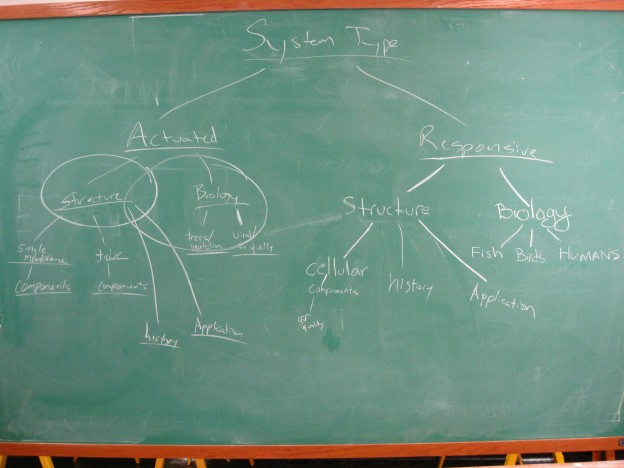 System Type
Actuated
Responsive
Structure
Biology
Structure
Biology
Single
Membrane
Components
components
trees/
history
Application
cellular
components
quality
history
Application
Fish
Birds
HUMANS